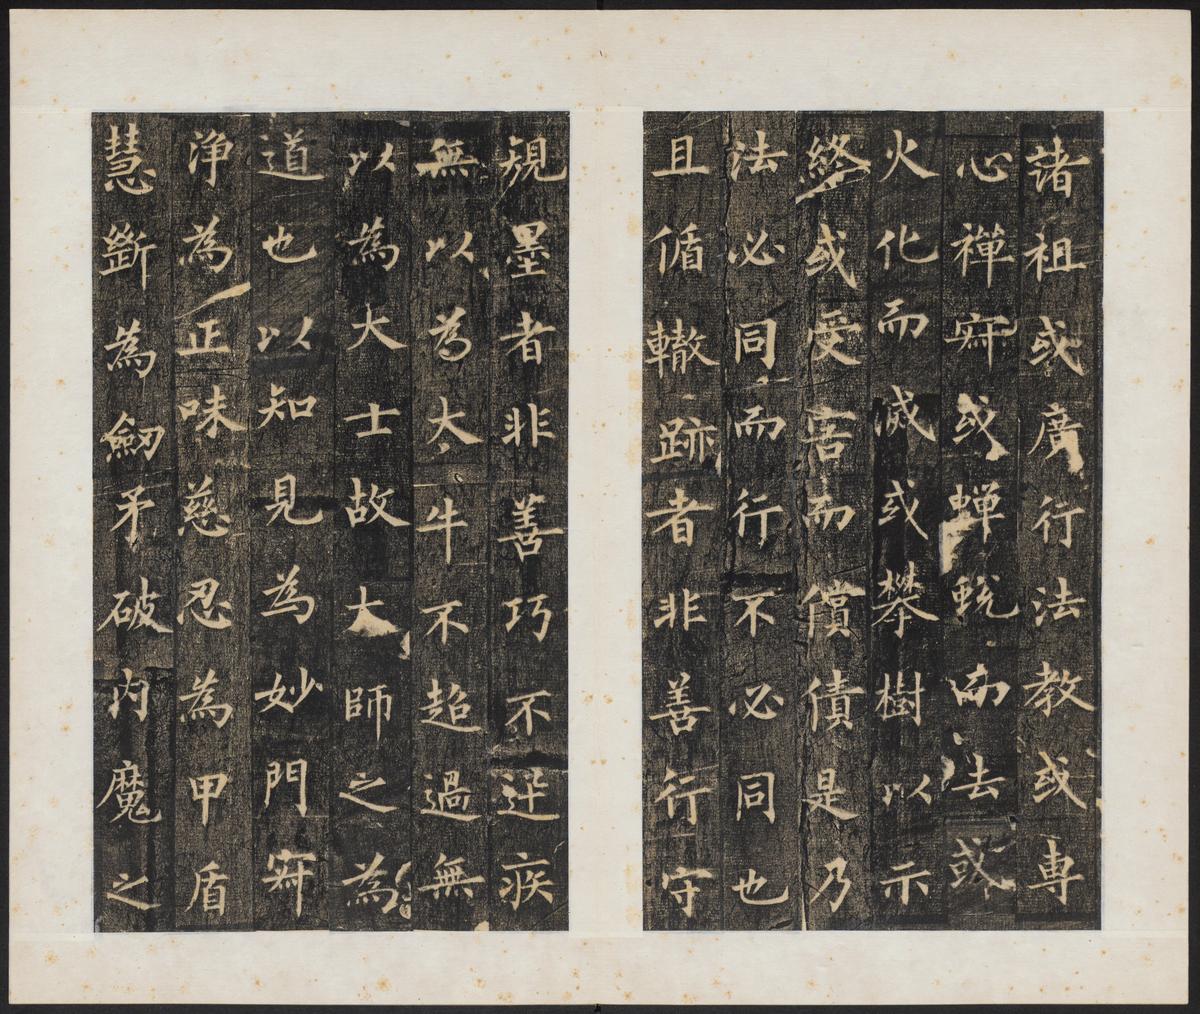 諸祖或廣行法教或專
心禪寂或蟬蛻而去或
火化而滅或攀樹以示
終或受害而償債是乃
法必同而行不必同也
且偱轍跡者非善行守
規墨者非善巧不迅疾
無以為大牛不超過無
以為大士故大師之為
道也以知見為妙門寂
淨為正味慈忍為甲盾
慧斷為劒矛破內魔之